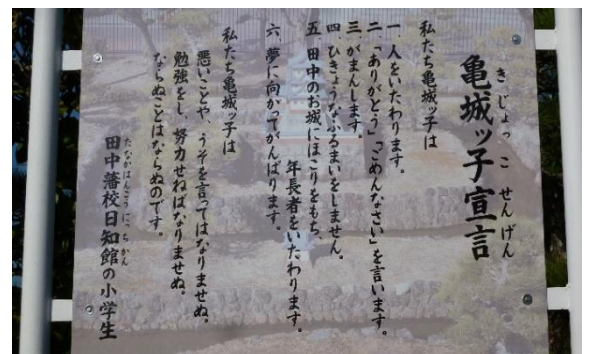 亀城ッ子宣言
きじょっこせんげん
私たち亀城ッ子は
一、人をいたわります。
二、「ありがとう」「ごめんなさい」を言います。
三、がまんします。
四、ひきょうなふるまいをしません。
五、田中のお城にほこりをもち、
年長者をいたわります。
六、夢に向かってがんばります。
私たち亀城ッ子は
悪いことや、うそを言ってはなりませぬ。
勉強をし、努力せねばなりませぬ。
ならぬことはならぬのです。
たなかはんこうにっちかん
田中藩校日知館の小学生